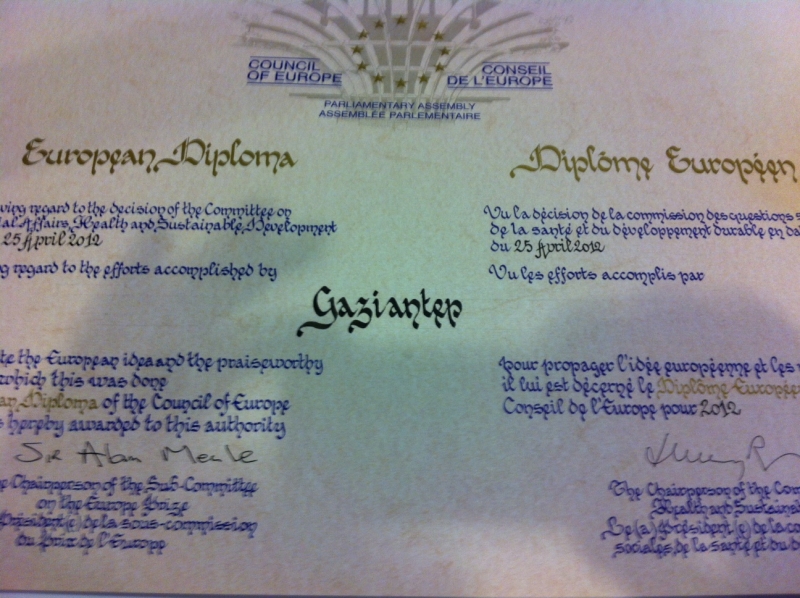 COUNCIL
OF EUROPE
CONSEIL
DE L'EUROPE
PARLIAMENTARY ASSEMBLY
ASSEMBLÉE PARLEMENTAIRE
European Diploma
ving regard to the decision of the Committee on
ial Affairs, Health and Sustainable Development
25 April 2012
g regard to the efforts accomplished by
Diplôme Européen
Vu la décision de la commission des questions s
de la santé et du développement durable en da
du 25 April 2012
Vu les efforts accomplis par
Gaziantep
te the European idea and the praiseworthy
which this was done
an Diploma of the Council of Europe
s hereby awarded to this authority
Sir Alan Meale
e Chairperson of the Sub-Committee
on the Europe Prize
Président(e) de la sous-commission
du Prix de l'Europe
pour propager l'idée européenne et les
il lui est décerné le Diplôme Europée
Conseil de l'Europe pour 2012
The Chairperson of the Com
Health and Sustaina
Le (a) Président (e) de la co
sociales, de la santé et du d